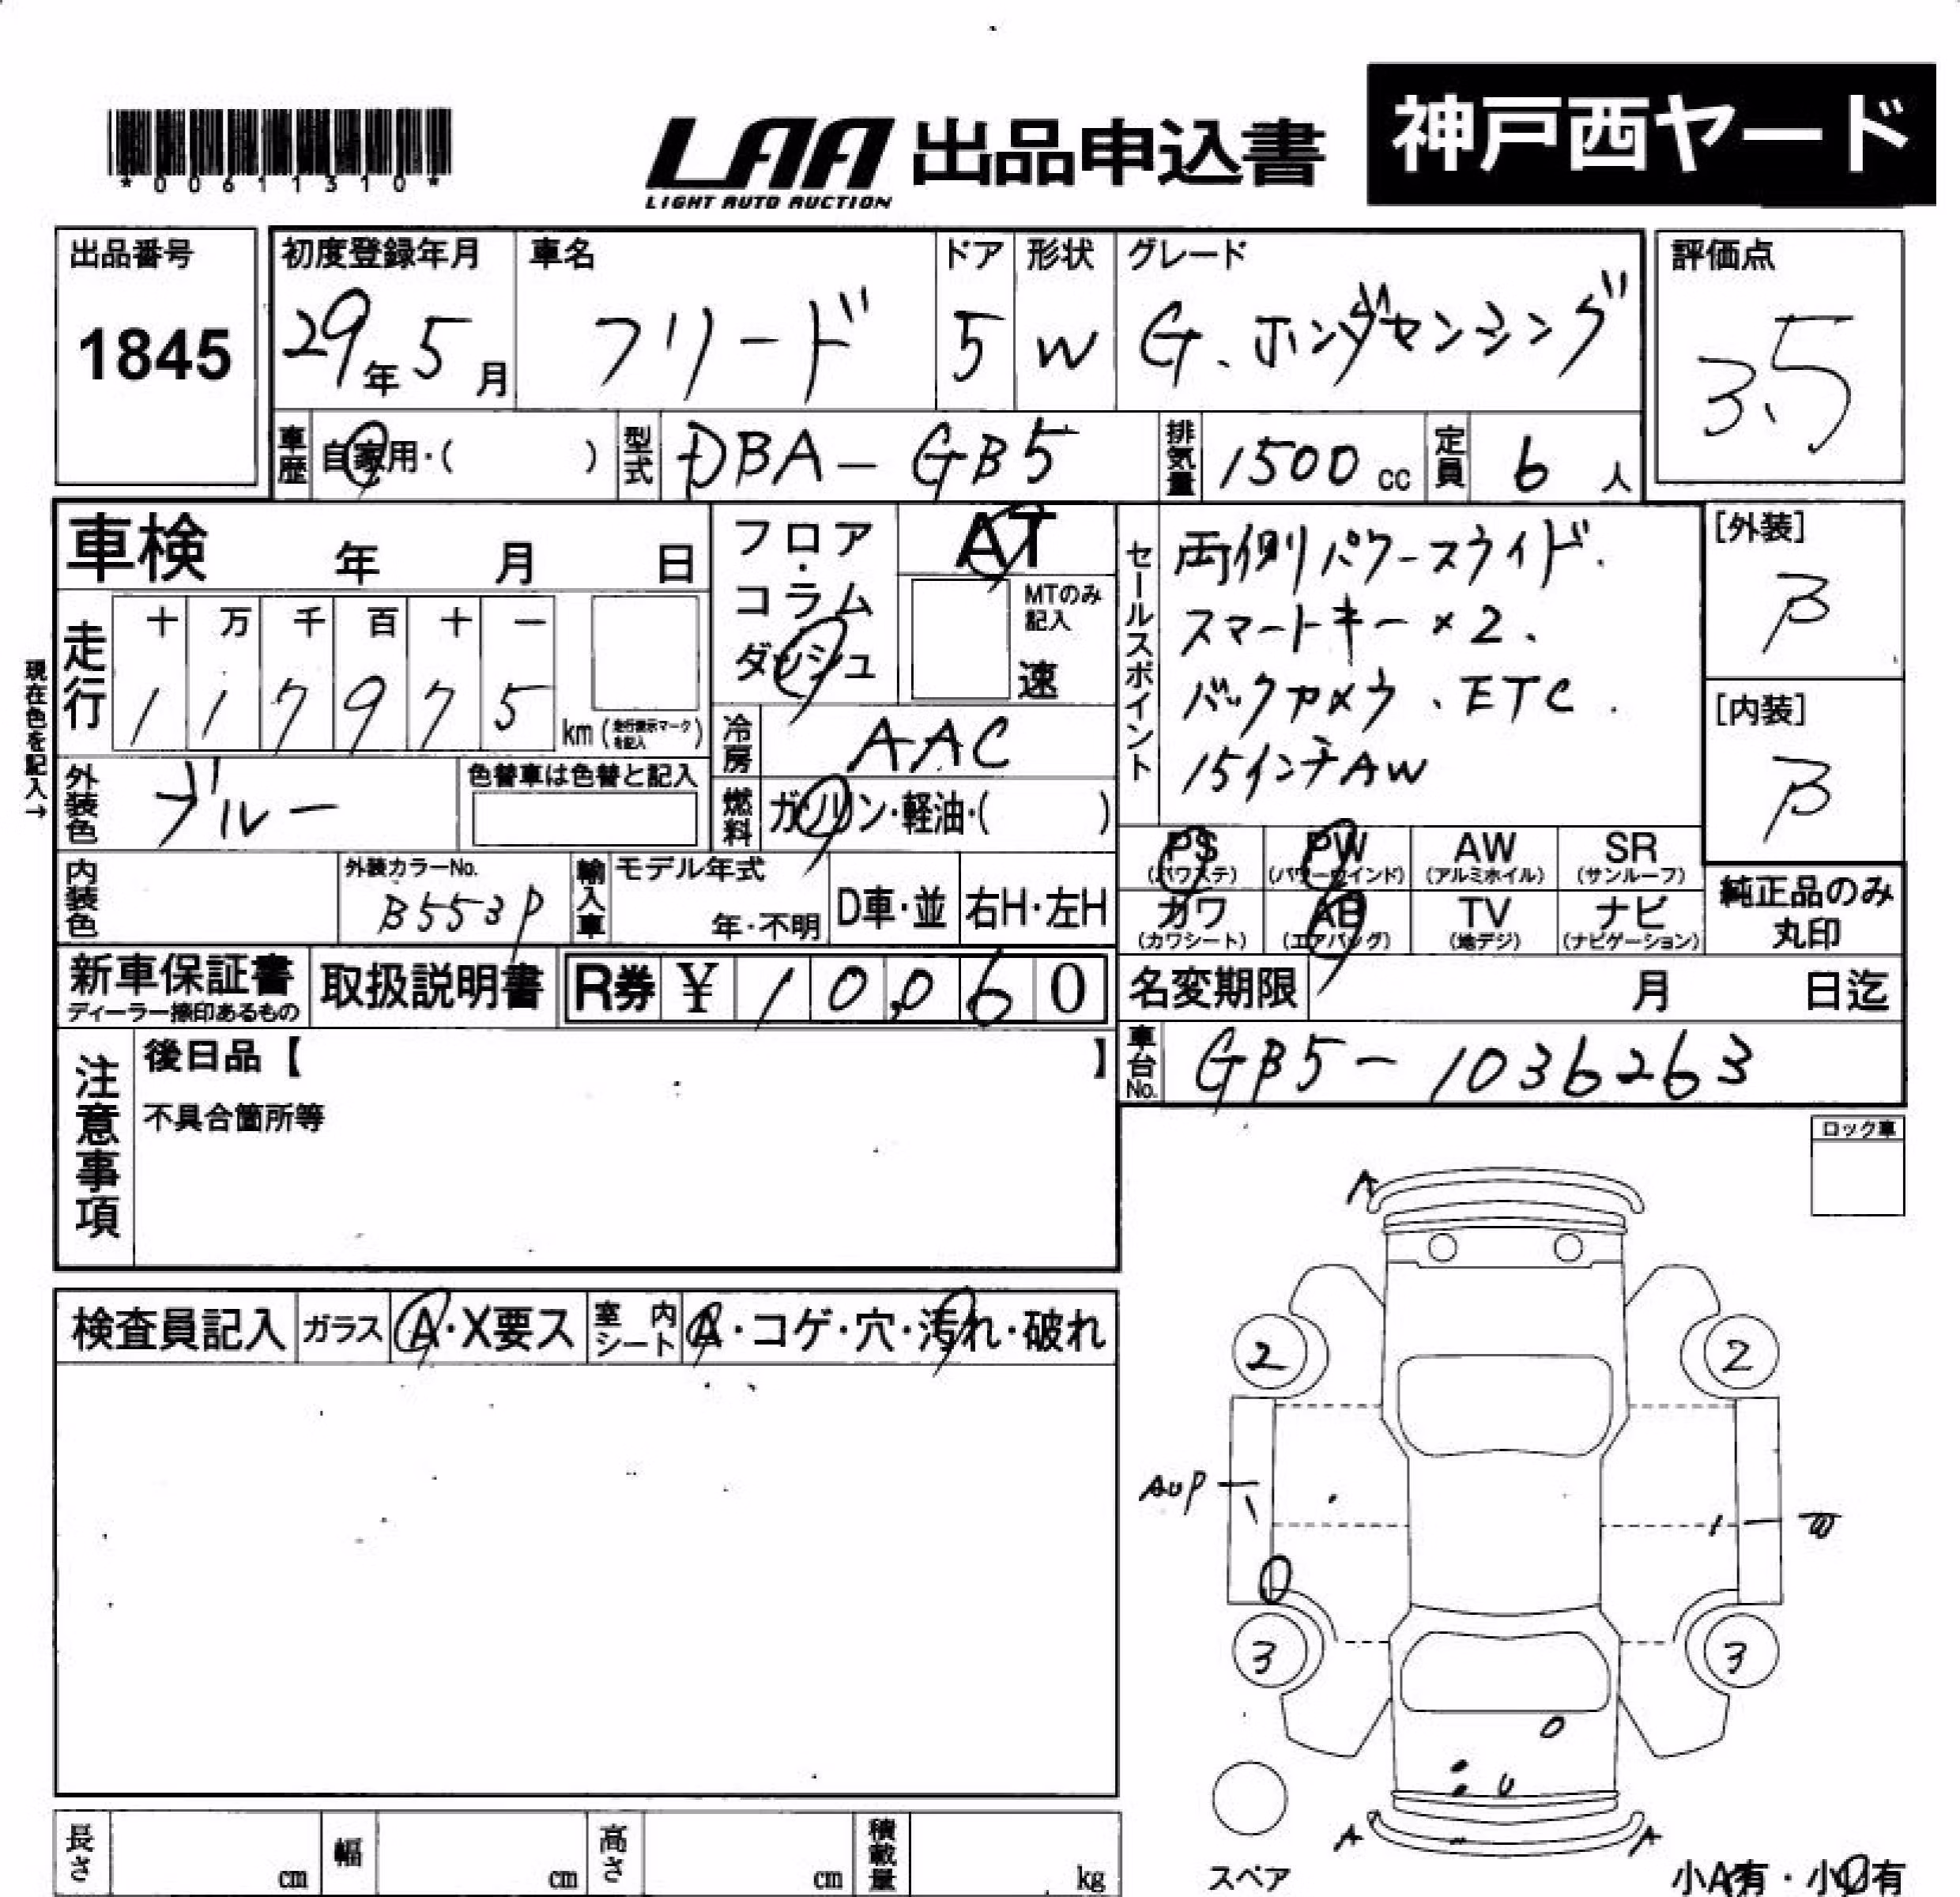 *00611310*
LAA 出品申込書 神戸西ヤード
LIGHT AUTO AUCTION
出品番号 初度登録年月 車名 ドア 形状 グレード 評価点
1845 29年5月 フリード 5 W G、ホンダセンシング 3.5
車歴 自家用・( ) 型式 DBA-GB5 排気量 1500cc 定員 6人
車検 年 月 日
フロア・コラム ダッシュ
AT
MTのみ記入
速
走行 十 万 千 百 十 一
1 1 7 9 7 5 km (走行表示マークを記入)
現在色を記入→
セールスポイント
両側パワースライド.
スマートキー×2、
バックカメラ、ETC.
15インチAW
[外装]
B
[内装]
B
冷房 AAC
外装色 ブルー 色替車は色替と記入
燃料 ガソリン・軽油・( )
PS (パワステ) PW (パワーウインド) AW (アルミホイル) SR (サンルーフ)
カワ (カワシート) AB (エアバッグ) TV (地デジ) ナビ (ナビゲーション)
純正品のみ
丸印
内装色 外装カラーNo. B553P 輸入車 モデル年式 年・不明 D車・並 右H・左H
新車保証書 ディーラー捺印あるもの 取扱説明書 R券 ¥ 10,060 名変期限 月 日迄
車台No. GB5-1036263
注意事項
後日品【 】
不具合箇所等
ロック車
検査員記入 ガラス A・X要ス 室内シート A・コゲ・穴・汚れ・破れ
A
2 2
AUP
3 3
U
A A
スペア
小A有・小U有
長さ cm 幅 cm 高さ cm 積載量 kg